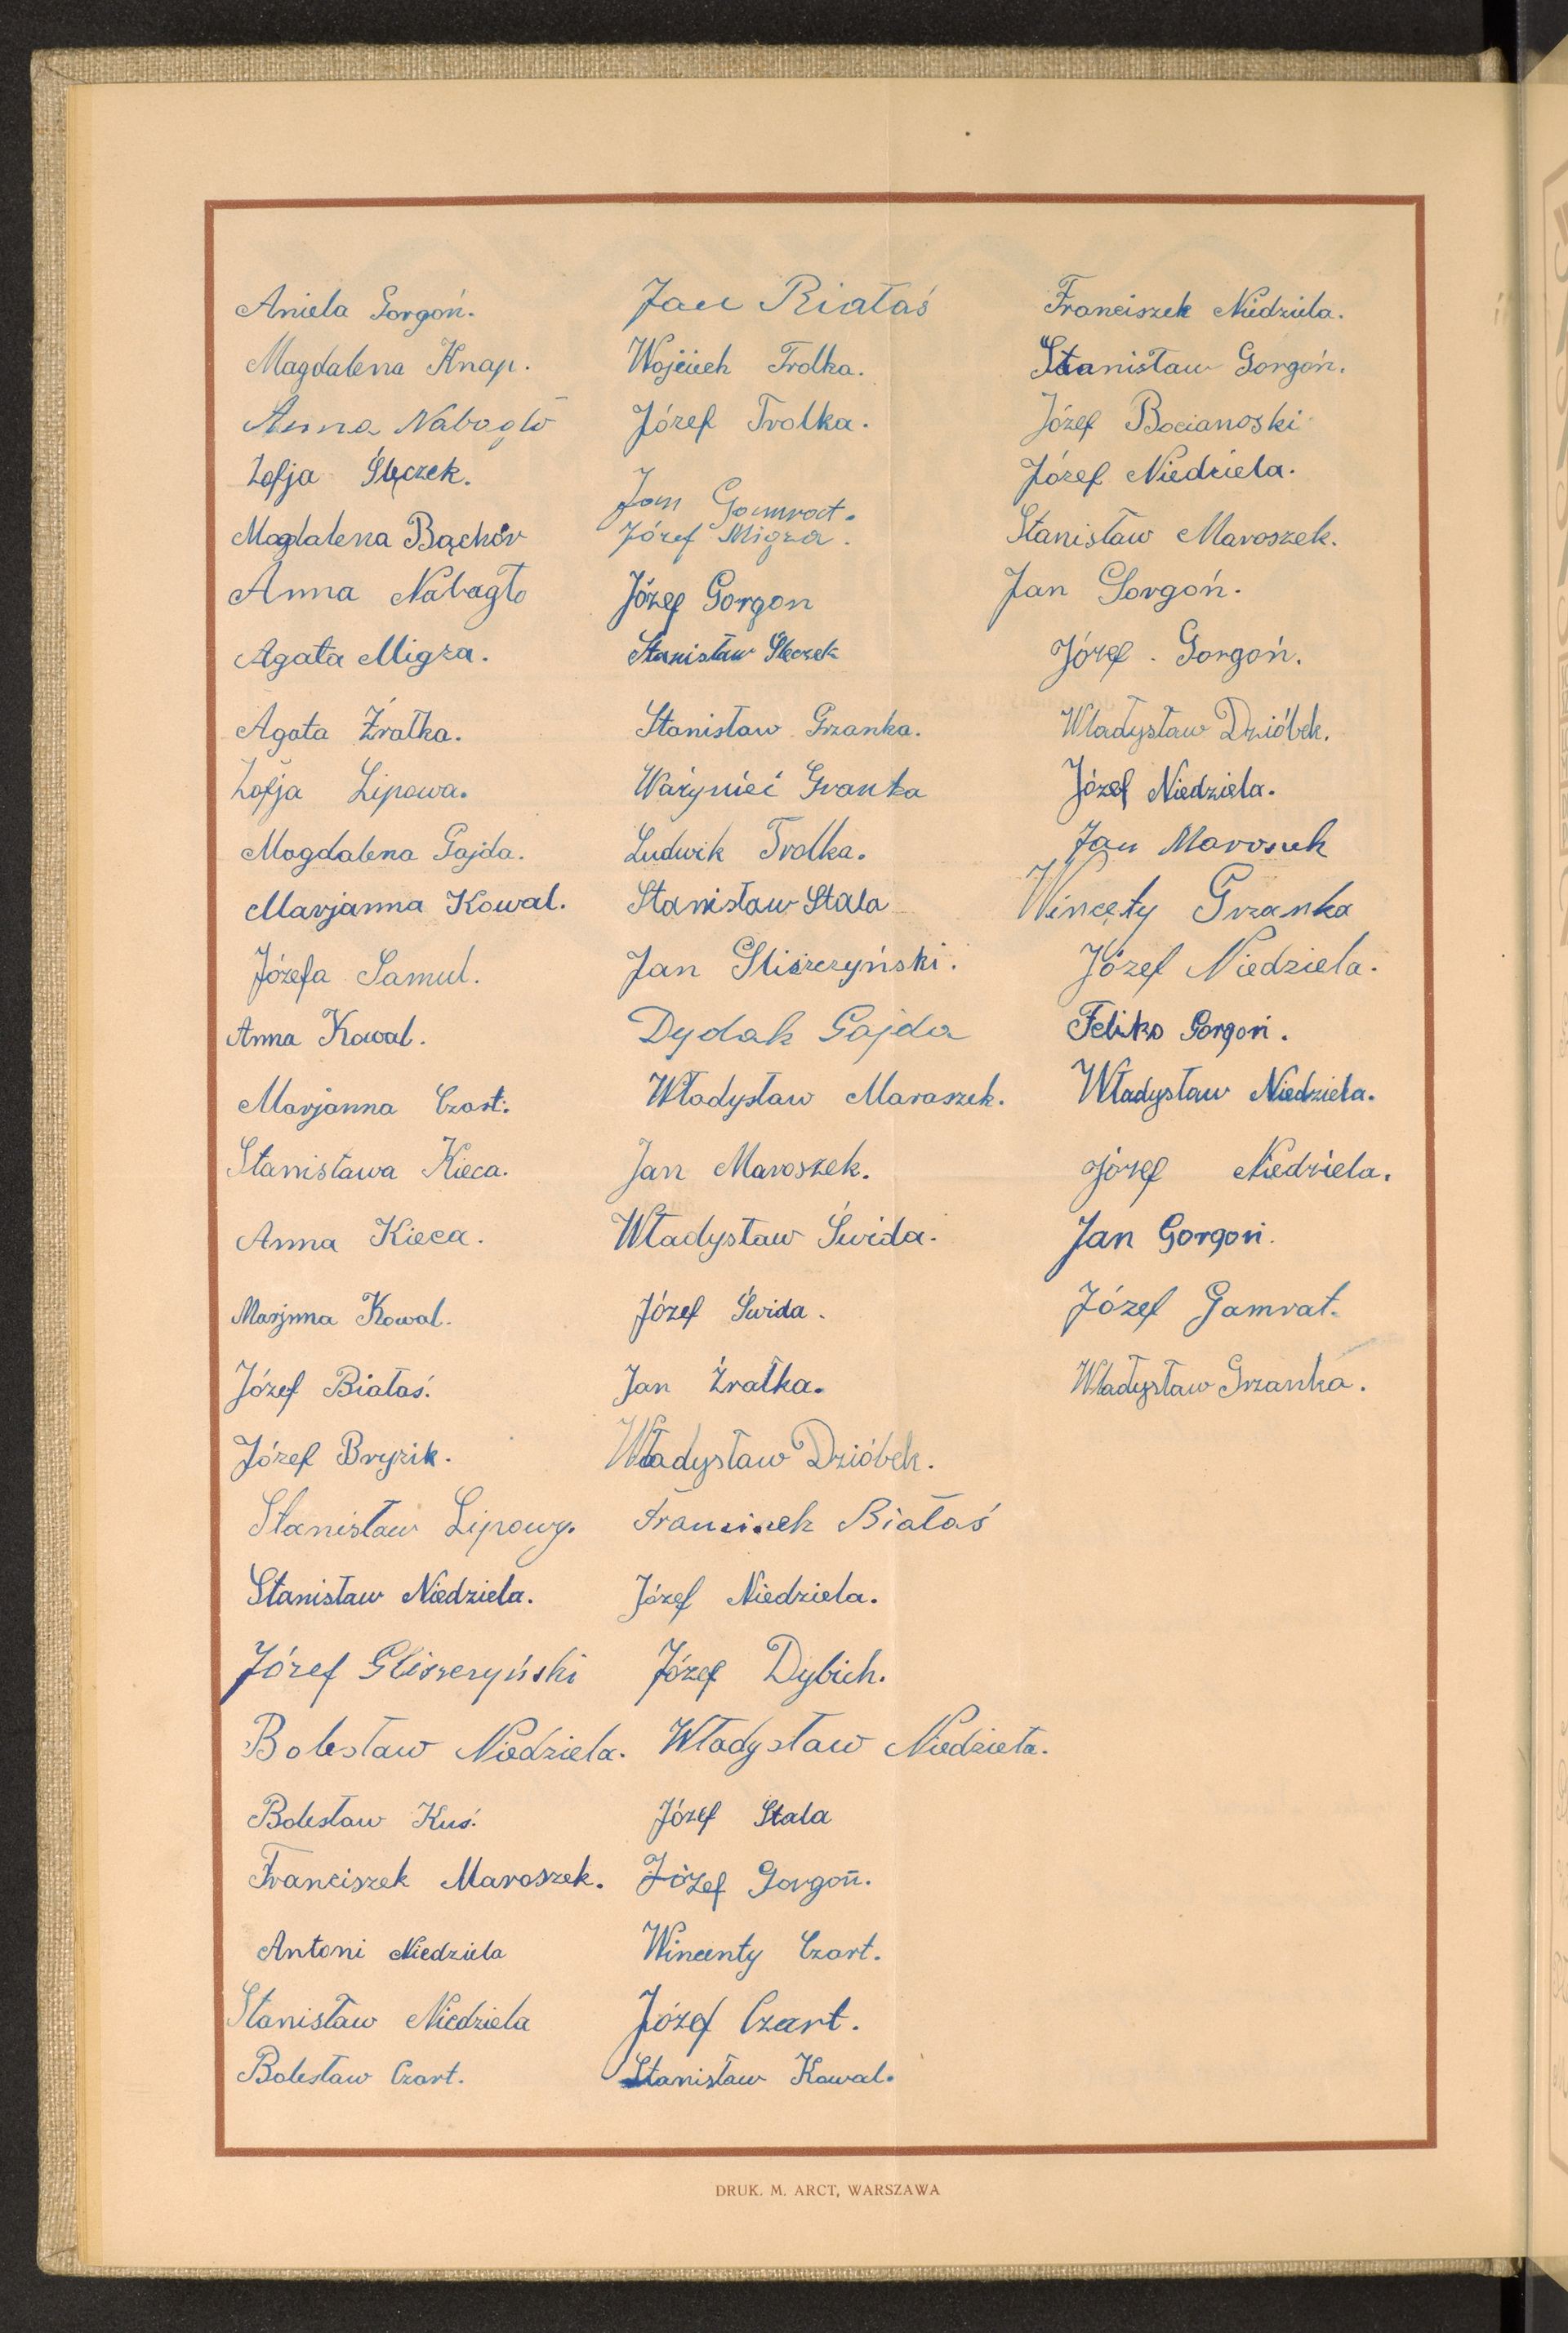 Aniela Gorgoń.
Magdalena Knap.
Anna Nabogło
Zofja Ślęczek.
Magdalena Bąchór
Anna Nabagło
Agata Migza.
Agata Źrałka.
Zofja Lipowa.
Magdalena Gajda.
Marjanna Kowal.
Józefa Samul.
Anna Kowal.
Marjanna Czart.
Stanisława Kieca.
Anna Kieca.
Marjnna Kowal.
Józef Białaś.
Józef Bryzik.
Stanisław Lipowy.
Stanisław Niedziela.
Józef Gliszczyński
Bolesław Niedziela.
Bolesław Kuś.
Franciszek Maroszek.
Antoni Niedziela
Stanisław Niedziela
Bolesław Czart.
Jan Białaś
Wojciech Trolka.
Józef Trolka.
Jan Gamrat.
Józef Migza.
Józef Gorgon
Stanisław Ślęczek
Stanisław Grzanka.
Ludwik Trolka.
Stanisław Stala
Jan Gliszczyński.
Dydak Gajda
Władysław Maraszek.
Jan Maroszek.
Władysław Świda.
Józef Świda.
Jan Źrałka.
Władysław Dzióbek.
Białaś
Józef Niedziela.
Józef Dybich.
Władysław Niedziela.
Józef Stala
Józef Gorgoń.
Wincenty Czart.
Józef Czart.
Stanisław Kowal.
Franciszek Niedziela.
Stanisław Gorgoń.
Józef Bocianoski
Józef Niedziela.
Stanisław Maroszek.
Jan Gorgoń.
Józef Gorgoń.
Władysław Dzióbek.
Józef Niedziela.
Jan
Wincęty Grzanka
Józef Niedziela.
Feliks Gorgoń.
Władysław Niedziela.
Józef Niedziela.
Jan Gorgoń.
Józef Gamrat.
Władysław Grzanka.
DRUK. M. ARCT, WARSZAWA